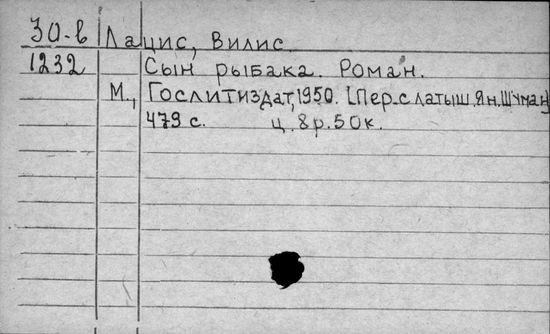 30-в Лацис, Вилис
1232 Сын рыбака. Роман.
М., Гослитиздат, 1950. [Пер. с латыш. Ян. Шуман]
479 с. ц. 8 р. 50 к.